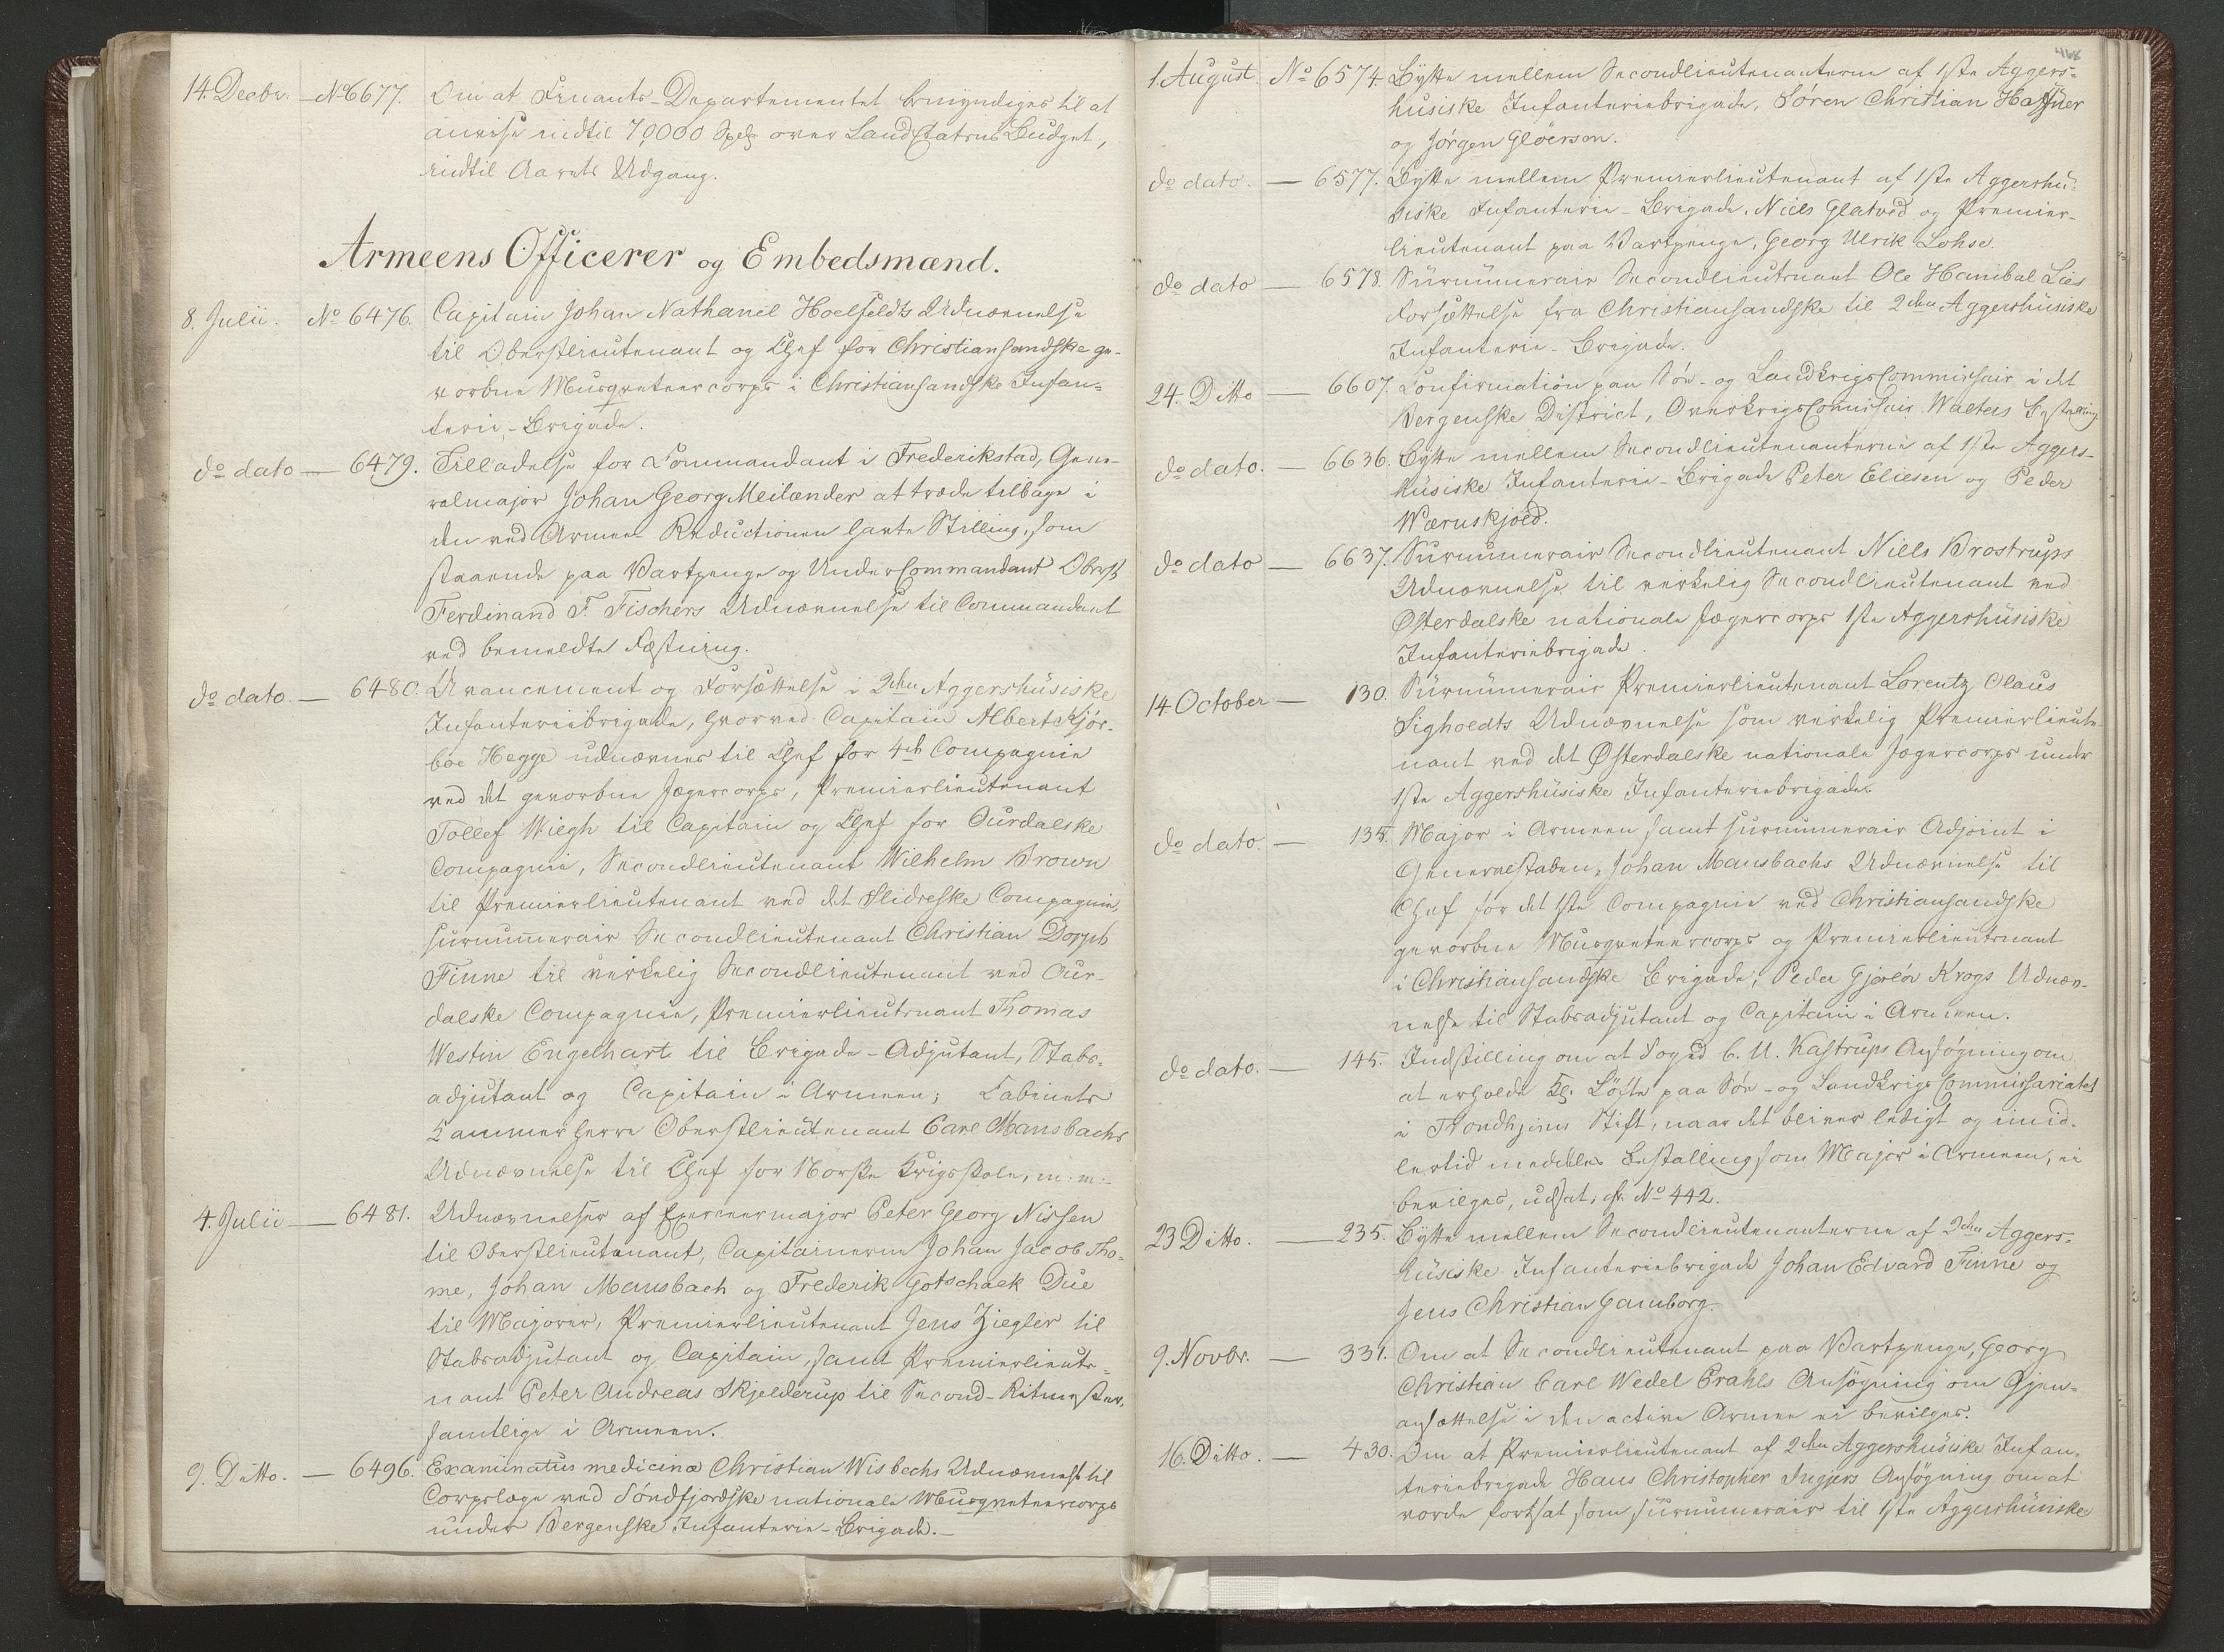 14. Decbr. — No 6677. Om at Finants-Departementet bemyndiges til at
anvise indtil 70000 Spd over Landetatens Budget,
indtil Aarets Udgang.
Armeens Officerer og Embedsmænd.
8. Julii. No 6476. Capitain Johan Nathanël Hoelfeldts Udnævnelse
til Oberstlieutenant og Chef for Christiansandske ge-
vorbne Musqueteercorps i Christiansandske Infan=
terie-Brigade.
do dato — 6479. Tilladelse for Commandant i Frederikstad, Gene-
ralmajor Johan Georg Meilænder at træde tilbage i
den ved Armee Reductionen havte Stilling, som
staaende paa Vartpenge og UnderCommandant Oberst
Ferdinand F. Fischers Udnævnelse til Commandant
ved bemeldte Fæstning.
do dato — 6480. Avancement og Forsættelse i 2den Aggershusiske
Infanteriebrigade, hvorved Capitain Albert Kjør-
boe Hegge udnævnes til Chef for 4de Compagnie
ved det gevorbne Jægercorps, Premierlieutenant
Tollef Wiegh til Capitain og Chef for Ourdalske
Compagnie, Secondlieutenant Wilhelm Brown
til Premierlieutenant ved det Slidreske Compagnie,
surnumerair Secondlieutenant Christian Dorph
Finne til virkelig Secondlieutenant ved Our-
dalske Compagnie, Premierlieutenant Thomas
Westin Engelhart til Brigade-Adjutant, Stabs-
adjutant og Capitain i Armeen; Cabinets
Kammerherre Oberstlieutenant Carl Mansbachs
Udnævnelse til Chef for Norske Krigsskole, m: m:
4. Julii — 6481. Udnævnelser af Exerceermajor Peter Georg Nissen
til Oberstlieutenant, Capitainerne Johan Jacob Tho=
me, Johan Mansbach og Frederik Gotschalk Due
til Majorer, Premierlieutenant Jens Ziegler til
Stabsadjutant og Capitain, samt Premierlieute=
nant Peter Andreas Skjelderup til Second-Ritmester,
samtlige i Armeen.
9. Ditto. — 6496. Examinatus medicinæ Christian Wisbechs Udnævnelse til
Corpslæge ved Søndfjordske nationale Musqueteercorps
under Bergenske Infanterie-Brigade.—
1 August. No 6574. Bytte mellem Secondlieutenanterne af 1ste Aggers=
husiske Infanteriebrigade, Søren Christian Haffner
og Jørgen Gløersen.
do dato. — 6577. Bytte mellem Premierlieutenant af 1ste Aggershu=
siske Infanterie-Brigade, Niels Glatved og Premier-
lieutenant paa Vartpenge, Georg Ulrik Lohse.
do dato — 6578. Surnumerair Secondlieutenant Ole Hanibal Lies
Forsættelse fra Christiansandske til 2den Aggershusiske
Infanterie-Brigade.
24. Ditto — 6607. Confirmation paa Søe- og LandkrigsCommissair i det
Bergenske District, OverkrigsComissair Walters Bestalling
do dato. — 6636. Bytte mellem Secondlieutenanterne af 1ste Aggers-
husiske Infanterie-Brigade Peter Eliesen og Peder
Wærnskjold.
do dato — 6637. Surnumerair Secondlieutenant Niels Brostrups
Udnævnelse til virkelig Secondlieutenant ved
Østerdalske nationale Jægercorps 1ste Aggershusiske
Infanteriebrigade.
14 October — 130. Surnumerair Premierlieutenant Lorentz Olaus
Sigholdts Udnævnelse som virkelig Premierlieute-
nant ved det Østerdalske nationale Jægercorps under
1ste Aggershusiske Infanteriebrigade.
do dato. — 135. Major i Armeen samt surnumerair Adjoint i
Generalstaben, Johan Mansbachs Udnævnelse til
Chef for det 1ste Compagnie ved Christiansandske
gevorbne Musqueteercorps og Premierlieutenant
i Christiansandske Brigade, Peder Gjerløv Krogs Udnæv-
nelse til Stabsadjutant og Capitain i Armeen.
do dato. — 145. Indstilling om at Foged C. U. Kastrups Ansøgning om
at erholde Kl. Løfte paa Søe- og LandkrigsCommissariatet
i Trondhjems Stift, naar det bliver ledigt og imid-
lertid meddeles Bestalling som Major i Armeen, ei
bevilges, udsat, cfr. No 442.
23 Ditto. — 235. Bytte mellem Secondlieutenanterne af 2den Aggers=
husiske Infanteriebrigade Johan Edvard Finne og
Jens Christian Gamborg.
9. Novbr. — 331. Om at Secondlieutenant paa Vartpenge, Georg
Christian Carl Wedel Prahls Ansøgning om Gjen=
ansættelse i den active Armee ei bevilges.
16. Ditto. — 430. Om at Premierlieutenant af 2den Aggershusiske Infan-
teriebrigade Hans Christopher Ingiers Ansøgning om at
vorde forsat som surnumerair til 1ste Aggershusiske